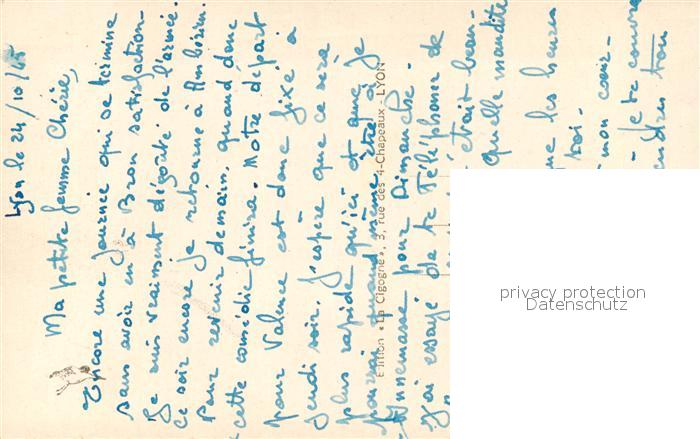 Lyon le 24/10/
Ma petite femme Chérie,
Encore une journée qui se termine
sans avoir eu à Bron satisfaction.
Je suis vraiment dégouté de l'armée.
Ce soir encore je retourne à
Pour revenir demain, quand donc
cette comédie finira. Notre départ
pour Valence est donc fixé à
jeudi soir, j'espère que ce sera
plus rapide qu'ici et que je
pourrai quand même être à
Annemasse pour Dimanche.
J'ai essayé de te téléphoner de
était beau-
Quelle maudite
que les heures
toi-
mon coeur-
- Je te couvre
tendres
Edition "La Cigogne", 3, rue des 4-Chapeaux - LYON
privacy protection
Datenschutz